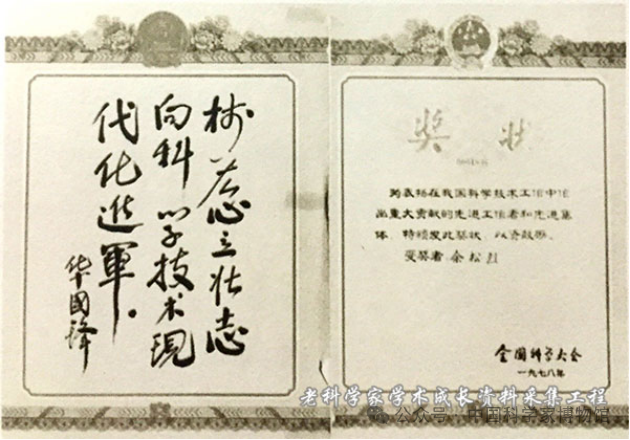 树雄心立壮志
向科学技术現
代化進軍。
华國锋
奖 状
为表扬在我国科学技术工作中作
出重大贡献的先进工作者和先进集
体，特颁发此奖状，以资鼓励。
受奖者 余松烈
全国科学大会
一九七八年
老科学家学术成长资料采集工程
公众号 · 中国科学家博物馆